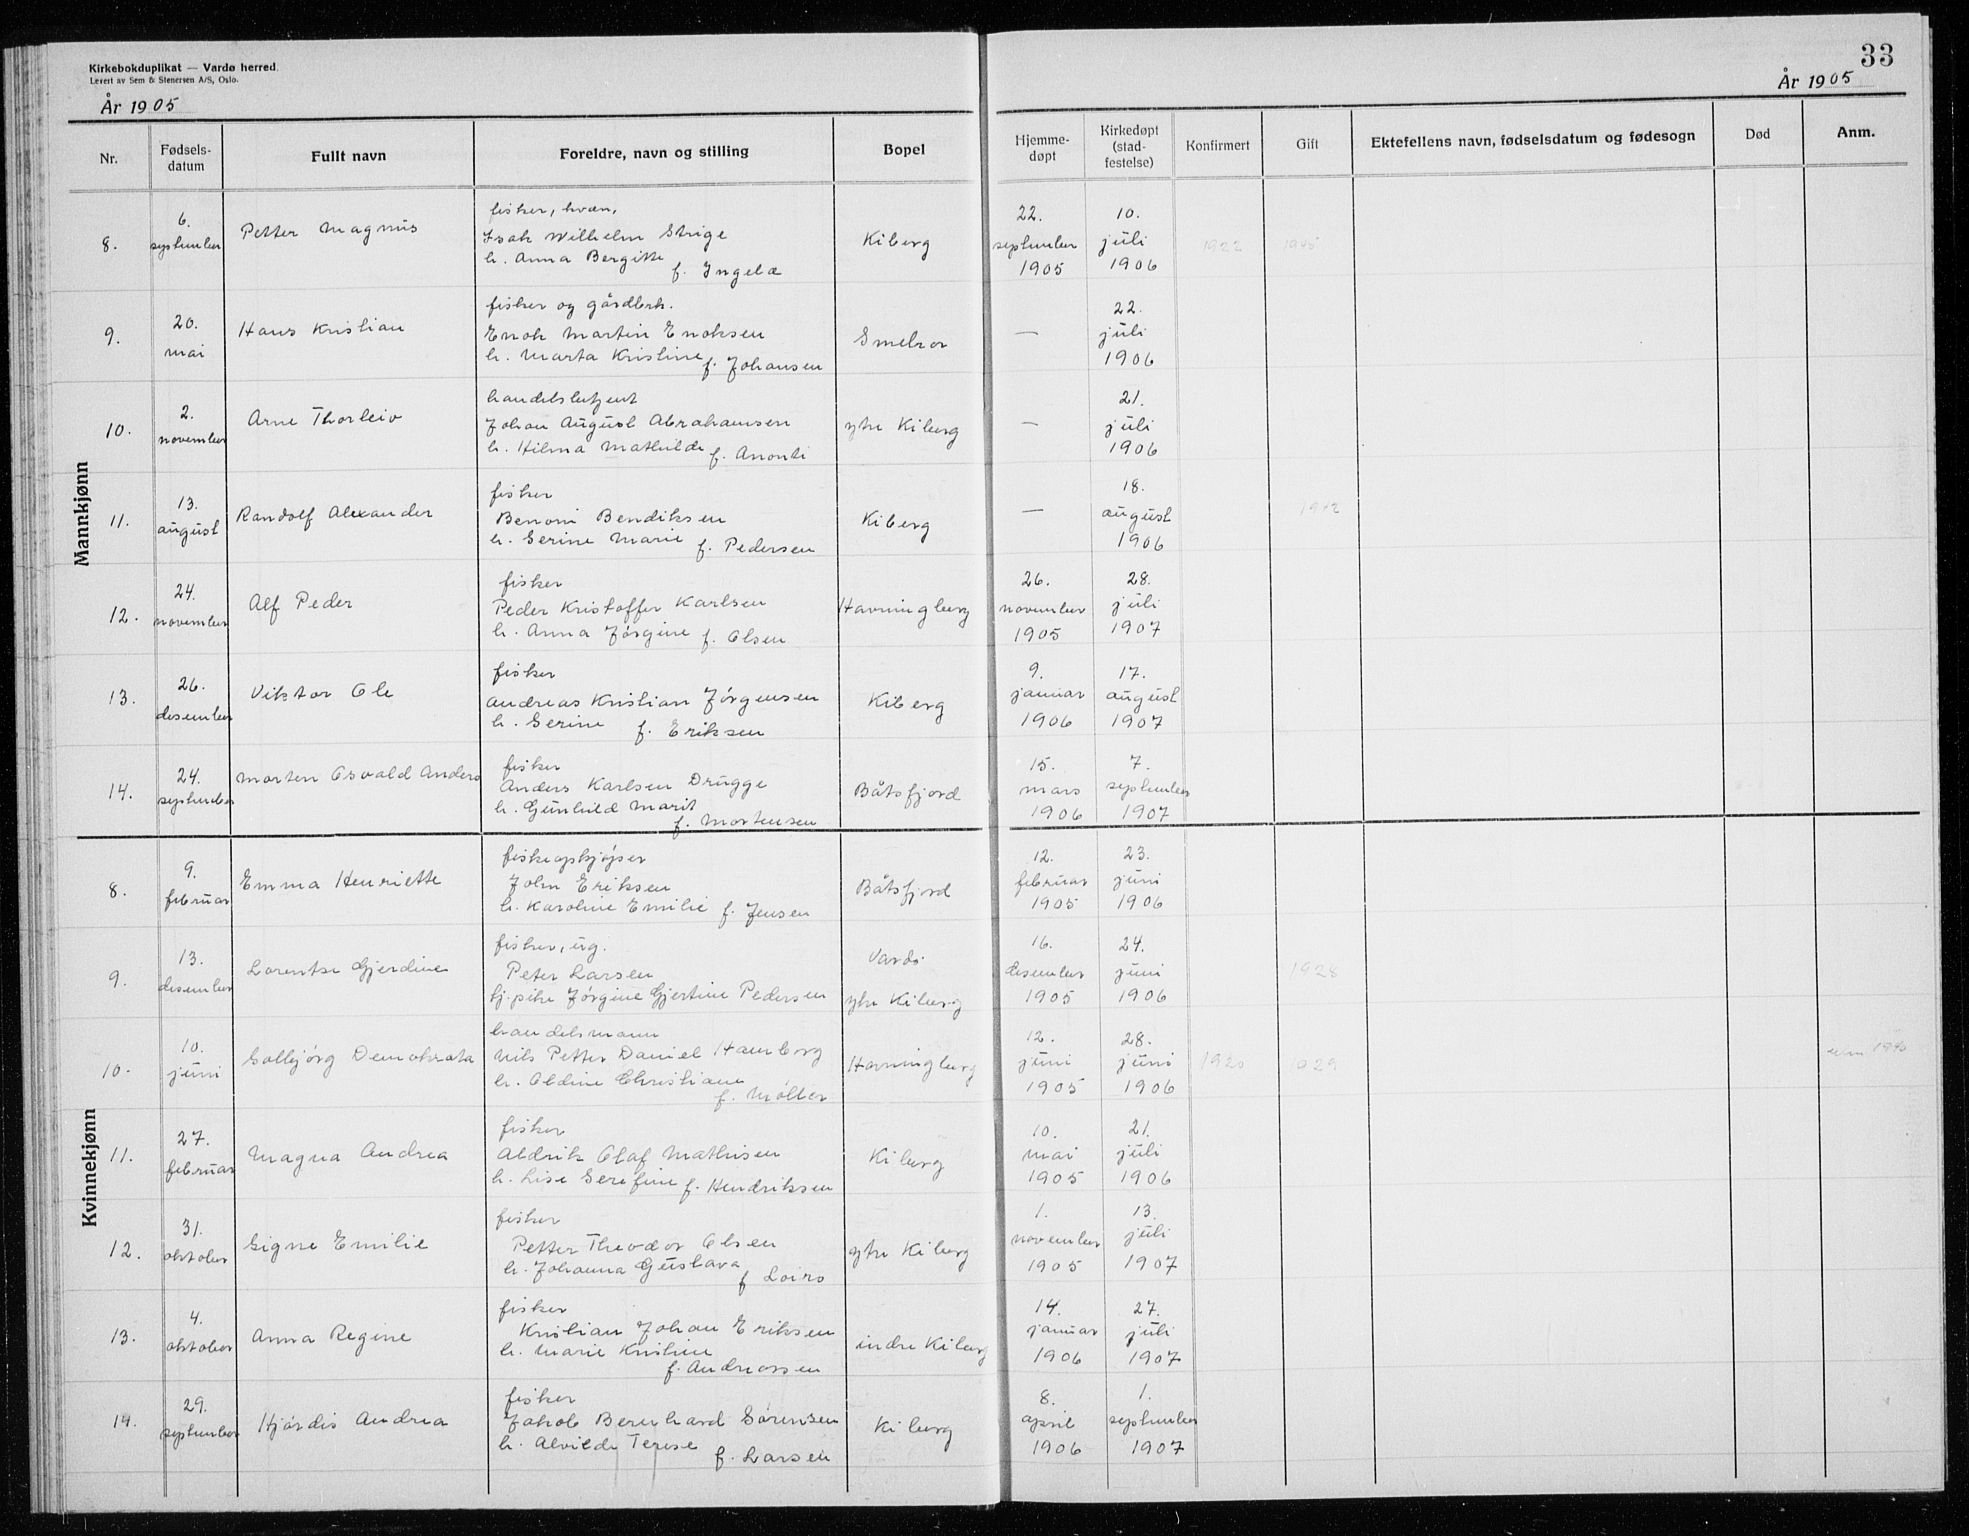 Kirkebokduplikat — Vardø herred.
Levert av Sem & Stenersen A/S, Oslo.
33
År 1905
År 1905
Nr. Fødsels-datum Fullt navn Foreldre, navn og stilling Bopel Hjemme-døpt Kirkedøpt (stad-festelse) Konfirmert Gift Ektefellens navn, fødselsdatum og fødesogn Død Anm.
Mannkjønn
6. fisker, kvæn, 22. 10.
8. september Petter Magnus Isak Wilhelm Strige Kiberg september juli 1922 1945
h. Anna Bergitte f. Ingelæ 1905 1906
20. fisker og gårdbrk. 22.
9. mai Hans Kristian Enok Martin Enoksen Smelror — juli
h. Marta Kristine f. Johansen 1906
2. handelsbetjent 21.
10. november Arne Thorleiv Johan August Abrahamsen ytre Kiberg — juli
h. Hilma Mathilde f. Anonti 1906
13. fisker 18.
11. august Randolf Alexander Benoni Bendiksen Kiberg — august 1942
h. Serine Marie f. Pedersen 1906
24. fisker 26. 28.
12. november Alf Peder Peder Kristoffer Karlsen Havningberg november juli
h. Anna Jørgine f. Olsen 1905 1907
26. fisker 9. 17.
13. desember Viktor Ole Andreas Kristian Jørgensen Kiberg januar august
h. Serine f. Eriksen 1906 1907
24. fisker 15. 7.
14. september Morten Osvald Anders Anders Karlsen Drugge Båtsfjord mars september
h. Gunhild Marit f. Mortensen 1906 1907
Kvinnekjønn
9. fiskeopkjøper 12. 23.
8. februar Emma Henriette John Eriksen Båtsfjord februar juni
h. Karoline Emilie f. Jensen 1905 1906
13. fisker, ug. Vardø 16. 24.
9. desember Lorentse Gjerdine Peter Larsen desember juni 1928
tj.pike Jørgine Gjertine Pedersen ytre Kiberg 1905 1906
10. handelsmann 12. 28.
10. juni Solbjørg Demokrata Nils Petter Daniel Hamborg Havningberg juni juni 1920 029 1940
h. Oldine Christiane f. Møller 1905 1906
27. fisker 10. 21.
11. februar Magna Andrea Aldrik Olaf Mathisen Kiberg mai juli
h. Lise Serefine f. Hendriksen 1905 1906
31. fisker 1. 13.
12. oktober Signe Emilie Petter Theodor Olsen ytre Kiberg november juli
h. Johanna Gustava f Loiro 1905 1907
4. fisker 14. 27.
13. oktober Anna Regine Kristian Johan Eriksen indre Kiberg januar juli
h. Marie Kristine f. Andreassen 1906 1907
29. fisker 8. 1.
14. september Hjørdis Andrea Jakob Bernhard Sørensen Kiberg april september
h. Alvilde Terese f. Larsen 1906 1907